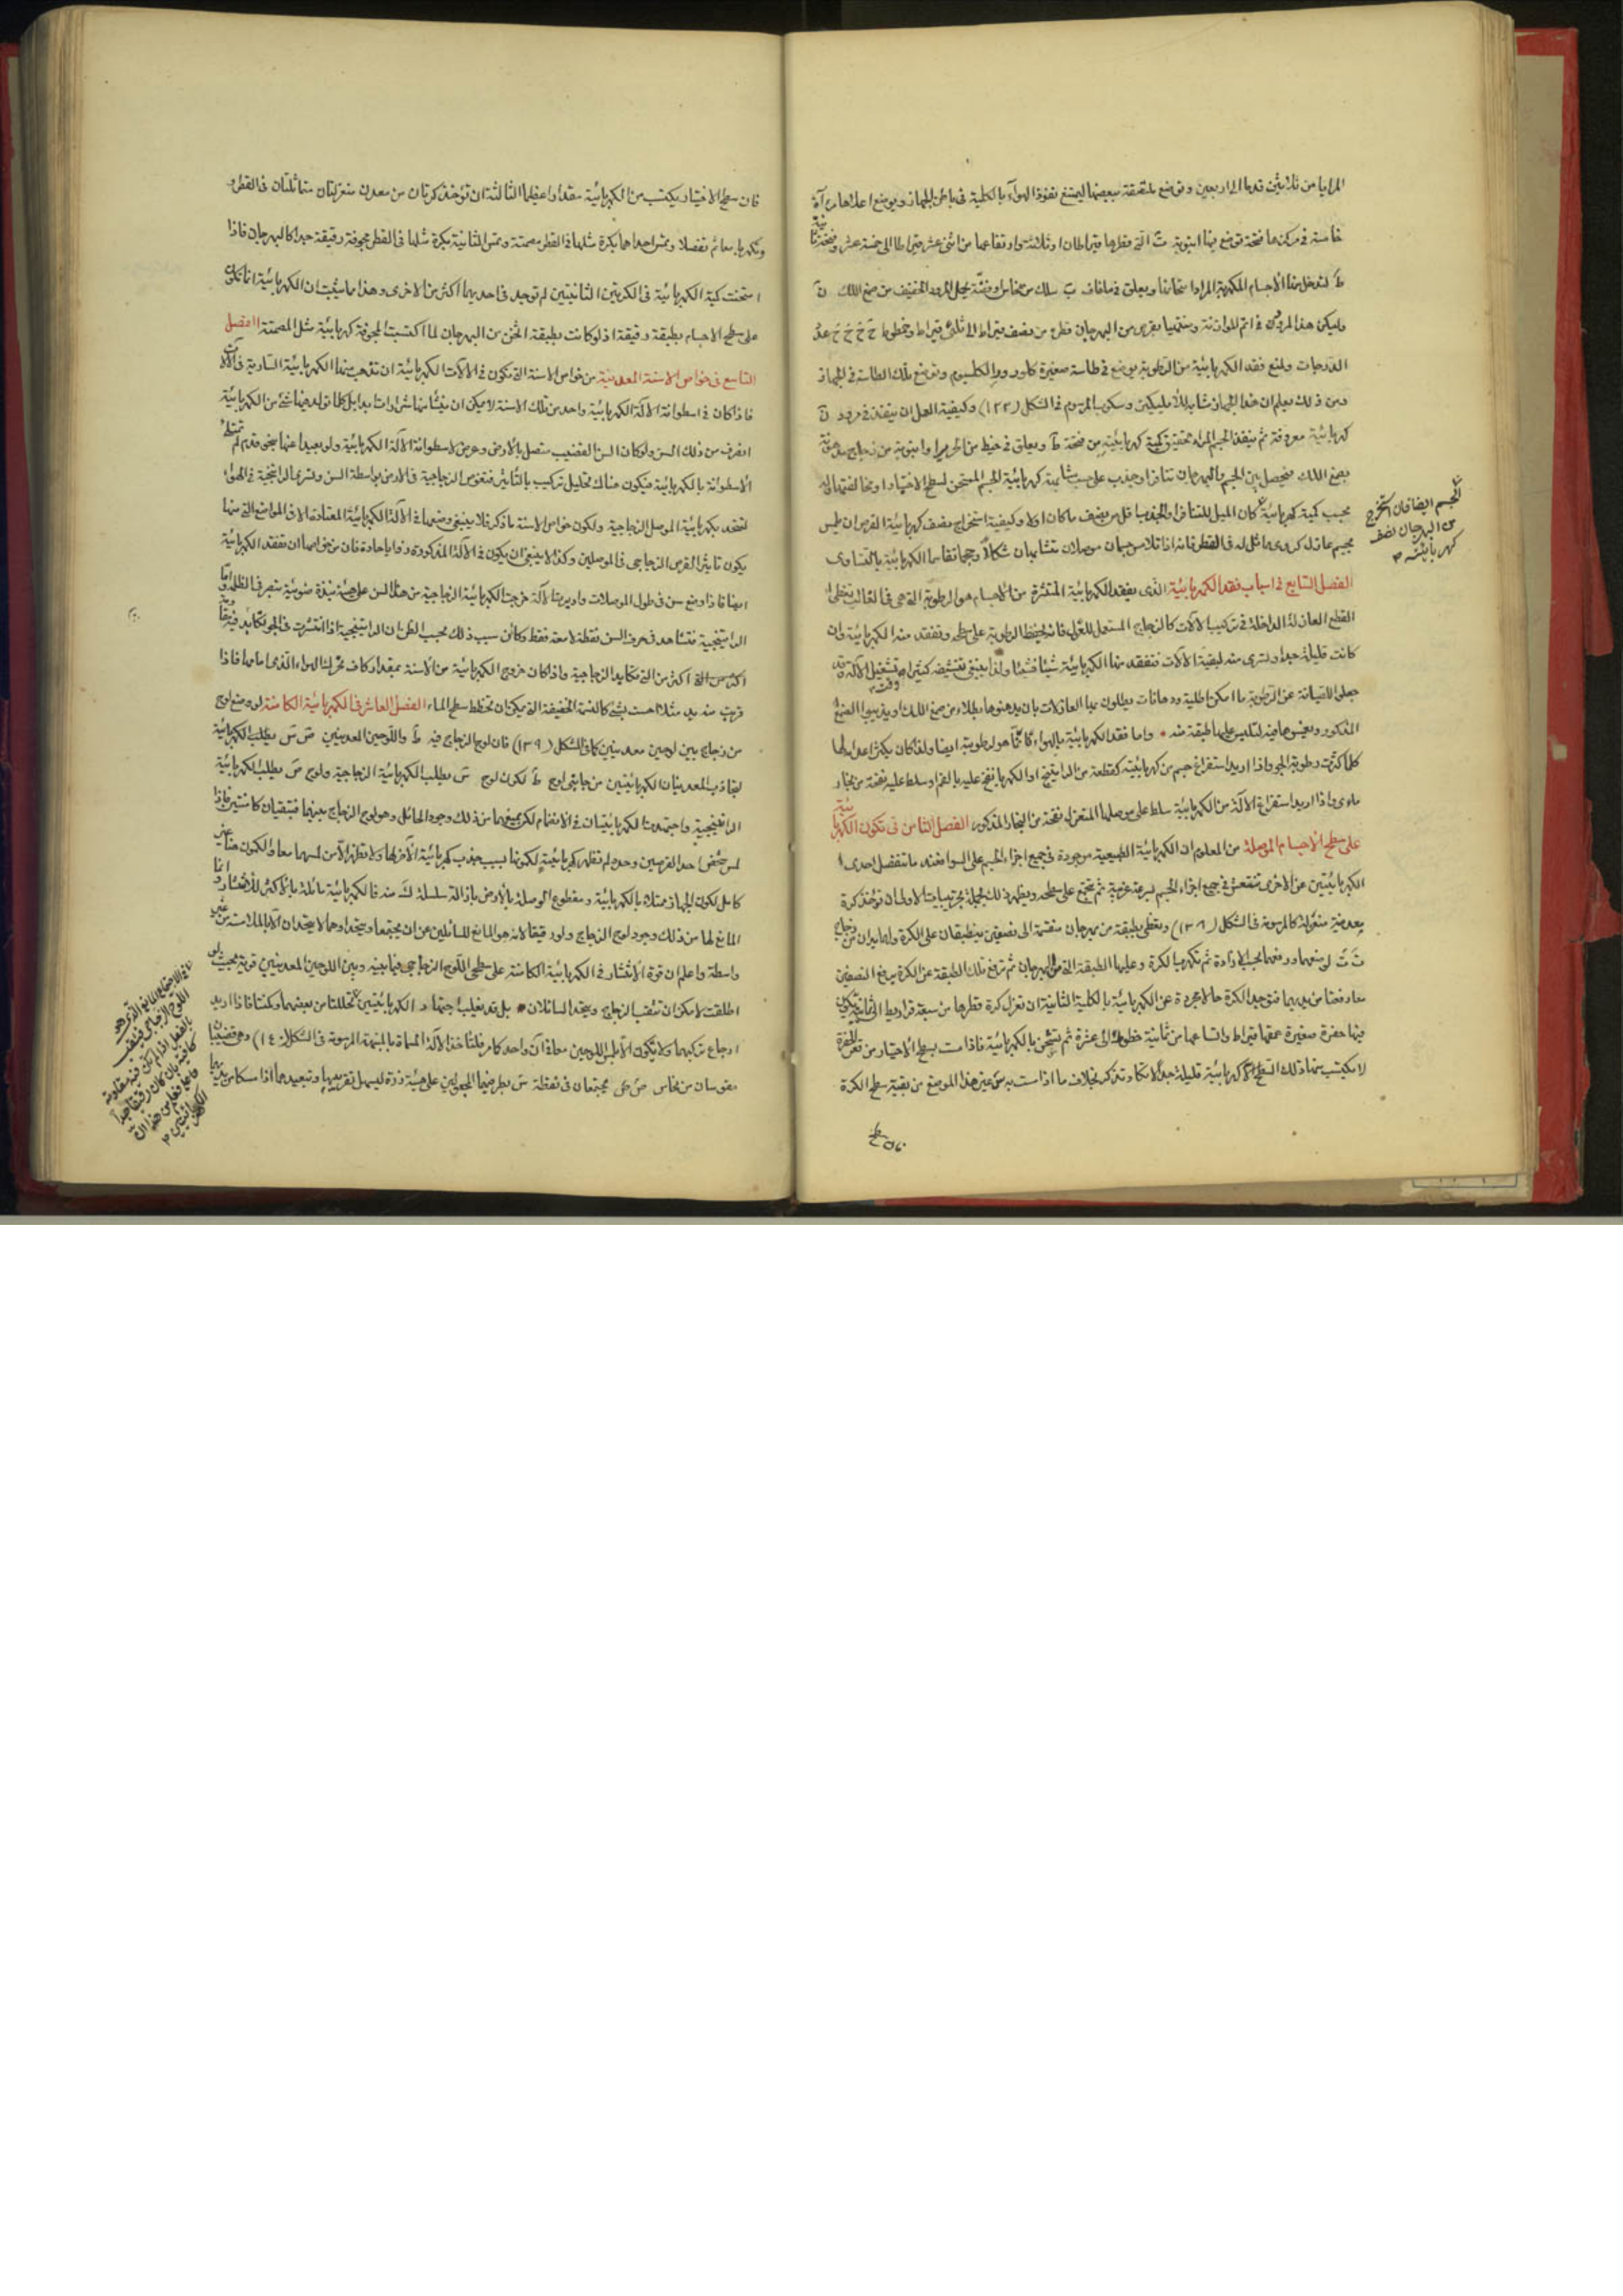 المرايا من ثلاثين قدما الى اربعين وتوضع ملتصقة ببعضها ليمتنع نفوذ الهوآء بالكلية فى باطن الجهاز ويوضع اعلاها مرآة
خامسة فى مركزها فتحة توضع فيها انبوبة ت التى قطرها قيراطان او ثلاثة وارتفاعها من اثنى عشر قيراطا الى خمسة عشر وفتحة ثانية
ط لتدخل منها الاجسام المكهربة المراد امتحانها ويعلق فى ب سلك من نحاس او فضة يحمل المرود الخفيف من صمغ اللك ن
وليكن هذا المرود فى اتم الموازنة ومنتهيا بقرص من البهرجان قطره من نصف قيراط الى ثلثى قيراط وخطوط ح ح ح ح عدد
الدرجات ولمنع فقد الكهربائية من الرطوبة يوضع فى طاسة صغيرة كلورور الكلسيوم وتوضع تلك الطاسة فى الجهاز
ومن ذلك يعلم ان هذا الجهاز مشابه وسكوب المرسوم فى الشكل (١٢٢) وكيفية العمل ان ينفذ فى مرود ن
كهربائية معروفة ثم ينفذ الجسم المراد تحقيق كمية كهربائيته من فتحة ط ويعلق فى خيط من الحرير او انبوبة من زجاج مدهونة
بصمغ اللك فيحصل بين الجسم والبهرجان تنافر او جذب على حسب مشابهة كهربائية الجسم الممتحن لسطح الاختيار او مخالفتها له
بحسب كمية كهربائية كان الميل للتنافر او الجذب باقل من نصف ما كان اولا وكيفية استخراج نصف كهربائية القرص ان يلمس
بجسم عازل كروى مماثل له فى القطر فانه اذا تلامس جسمان موصلان متشابهان شكلا وحجما تقاسما الكهربائية بالتساوى
الفصل السابع فى اسباب فقد الكهربائية الذى يفقد الكهربائية المنتشرة من الاجسام هو الرطوبة التى هى فى الغالب تغطى
القطع العازلة الداخلة فى تركيب الآلات كالزجاج المستعمل للعزل فانه يحفظ الرطوبة على سطحه وتفقد منه الكهربائية وان
كانت قليلة جدا وتسرى منه لبقية الآلات فتفقد منها الكهربائية شيئا فشيئا ولذا ينبغى تنشيفه كثيرا وقت تشغيل الآلة وقد
جعلوا للصيانة عن الرطوبة ما امكن اطلية ودهانات يطلون بها العازلات بان يدهنوها بطلاء من صمغ اللك او يذيبوا الصمغ
المذكور ويغمسوها فيه لتكسى عليها طبقة منه واما فقد الكهربائية بالهواء فانما هو لرطوبته ايضا ولذا كان يكثر اعدامه لها
كلما كثرت رطوبة الجو واذا اريد استفراغ جسم من كهربائيته كقطعة من الراتينج او الكهربا نفخ عليه بالفم او سلط عليه نفخة من بخار
مائى واذا اريد استفراغ الآلة من الكهربائية سلط على موصلها المنعزل نفخة من البخار المذكور الفصل الثامن فى تكون الكهربائية
على سطح الاجسام الموصلة من المعلوم ان الكهربائية الطبيعية موجودة فى جميع اجزاء الجسم على السواء فعند ما تنفصل احدى
الكهربائيتين عن الاخرى تنقعش فى جميع اجزاء الجسم بسرعة غريبة ثم تجتمع على سطحه ويظهر ذلك بجملة تجريبات الاولى ان تؤخذ كرة
معدنية منعزلة كالمرسومة فى الشكل (١٣٨) وتغطى بطبقة من بهرجان منقسمة الى نصفين ينطبقان على الكرة ولهما يدان من زجاج
ت ت لوضعهما ورفعهما بحسب الارادة ثم تكهرب الكرة وعليها الطبقة التى من البهرجان ثم ترفع تلك الطبقة عن الكرة برفع النصفين
معا دفعة من يديهما فتوجد الكرة حالا مجردة عن الكهربائية بالكلية الثانية ان تعزل كرة قطرها من سبعة قراريط الى ثمانية يكون
فيها حفرة صغيرة عمقها قيراط واتساعها من ثمانية خطوط الى عشرة ثم تشحن بالكهربائية فاذا مست بسطح الاختيار من قعر الحفرة
لا يكتسب منها ذلك السطح الا كهربائية قليلة جدا لا تكاد تذكر بخلاف ما اذا مست به من غير هذا الموضع من بقية سطح الكرة
الجسم ايضا فان استخرج
من البهرجان نصف
كهربائيته
فان سطح الاختبار يكتسب من الكهربائية مقدارا عظيما الثالثة ان تؤخذ كرتان من معدن منعزلتان متماثلتان فى القطر
وتكهربا معا ثم تفصلا وتمس احداهما بكرة مثلها فى القطر مصمتة وتمس الثانية بكرة مثلها فى القطر مجوفة رقيقة جدا كالبهرجان فاذا
امتحنت كمية الكهربائية فى الكرتين الثانيتين لم توجد فى احديهما اكثر من الاخرى وهذا مما يثبت ان الكهربائية انما تكون
على سطح الاجسام بطبقة رقيقة اذ لو كانت بطبقة اثخن من البهرجان لما اكتسبت المجوفة كهربائية مثل المصمتة الفصل
التاسع فى خواص الاسنة المعدنية من خواص الاسنة التى تكون فى الآلات الكهربائية ان تذهب منها الكهربائية السارية فى الآلات
فاذا كان فى اسطوانة الآلة الكهربائية واحد من تلك الاسنة لا يمكن ان ينشأ منها شرارات بل كلما تولد فيها شئ من الكهربائية
انصرف من ذلك السن ولو كان السن لقضيب متصل بالارض وعرض لاسطوانة الآلة الكهربائية ولو بعيدا عنها بنحو قدم لم تمتلئ
الاسطوانة بالكهربائية فيكون هناك تحليل تركيب بالتأثير فتغوص الزجاجية فى الارض بواسطة السن وتسرى الراتنجية فى الهواء
لتتحد بكهربائية الموصل الزجاجية ولكون خواص الاسنة ما ذكر فلا ينبغى وضعها فى الآلة الكهربائية المعتادة الا فى المواضع التى منها
يكون تأثير القرص الزجاجى فى الموصلين وكذا لا ينبغى ان يكون فى الآلة المذكورة زوايا حادة فان من خواصها ان تفقد الكهربائية
ايضا فاذا وضع سن فى طول الموصلات واديرت الآلة خرجت الكهربائية الزجاجية من هذا السن على هيئة نبذة ضوئية تبصر فى الظلمة واما
الراتينجية فتشاهد فى حرف السن نقطة لامعة فقط وكان سبب ذلك بحسب الظن ان الراتينجية اذا انتشرت فى الجو تكابد فيه مقاومة
اكثر من التى تكابدها الزجاجية واذا كان خروج الكهربائية من الاسنة بمقدار كاف تحرك الهواء الذى امامها فاذا
قربت منه يد مثلا احست بشئ كالنسمة الخفيفة التى يمكن ان تخطط سطح الماء الفصل العاشر فى الكهربائية الكامنة لو وضع لوح
من زجاج بين لوحين معدنيين كما فى الشكل (١٣٩) فان لوح الزجاج فيه ط واللوحين المعدنيين ص س يطلب الكهربائية
لتجاذب المعدنيان الكهربائيتين من جانبى لوح ط لكون لوح س يطلب الكهربائية الزجاجية ولوح ص يطلب الكهربائية
الراتينجية واجتهدت الكهربائيتان فى الانضمام لكن يمنعهما من ذلك وجود الحائل وهو لوح الزجاج بينهما فتبقيان كامنتين فاذا
لمس شخص احد القرصين وحده لم تظهر كهربائية لكونها بسبب جذب كهربائية الآخر لها ولا تظهر الا من لمسهما معا
كامل لكون الجهاز ممتلئا بالكهربائية ومقطوع الوصلة بالارض بازالة سلسلة ك منه فالكهربائية مائلة بالاكثر للانتشار وانما
المانع لها من ذلك وجود لوح الزجاج ولو رقيقا لانه هو المانع للسائلين عن ان يجتمعا ويتحدا وهما لا يتحدان الا بالملامسة من غير
واسطة واعلم ان قوة الانتشار فى الكهربائية الكامنة على سطحى اللوح الزجاجى فيما بينه وبين اللوحين المعدنيين قوية بحيث لو
اطلقت لامكن ان تثقب الزجاج ويتحد السائلان بل قد يغلب الكهربائيتين تخللتا من بعضهما وكمنتا فاذا اريد
ارجاع تركيبهما ولا يكون الا بلمس اللوحين معا فى آن واحد كما مر قلنا خذ الآلة المسماة الشكل (١٤٠) وهى قضيبان
مقوسان من نحاس ص ص مجتمعان فى نقطة س بطرفيهما المجعولين على هيئة زرة ليسهل تقريبهما وتبعيدهما اذا امسكا من يديهما
اللوح الزجاجى فينثقب
بالفعل اذا لم تكن فيه مقاومة
كافية بان كان رقيقا جدا